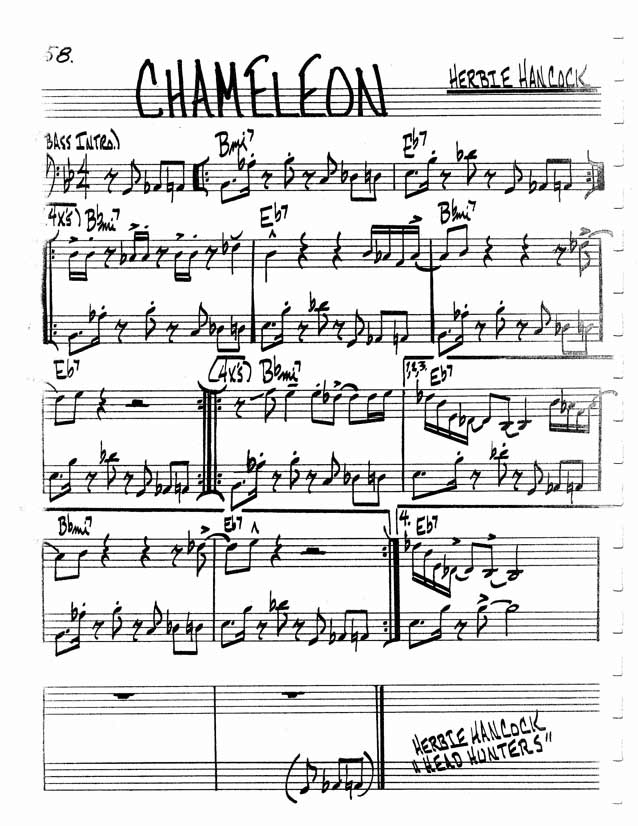 58.
CHAMELEON
HERBIE HANCOCK
BASS INTRO.) Bmi7 Eb7
4X'S) Bbmi7 Eb7 Bbmi7
Eb7 (4X'S) Bbmi7 1,2,3. Eb7
Bbmi7 Eb7 4. Eb7
HERBIE HANCOCK
"HEAD HUNTERS"